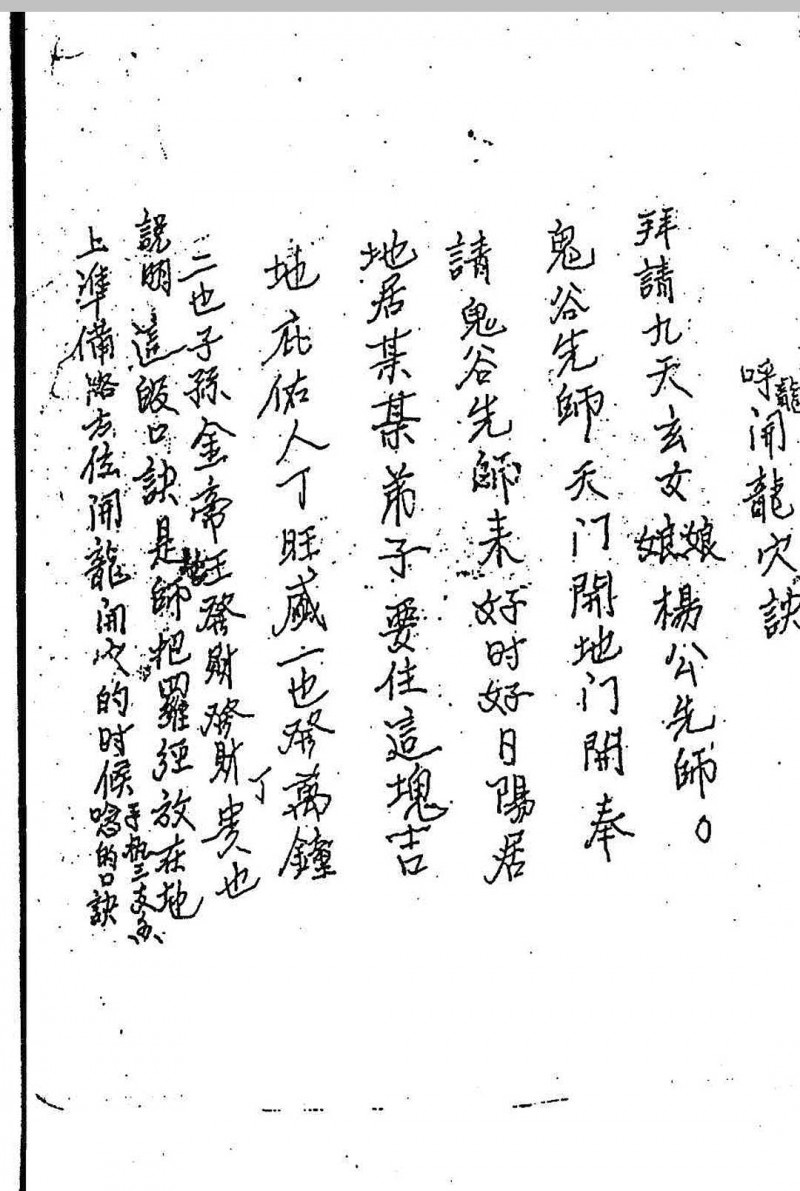 呼龍開龍穴訣
拜請九天玄女娘娘楊公先師。
鬼谷先師天门開地门開奉
請鬼谷先師来好时好日陽居
地居某某弟子要住這塊吉
地庇佑人丁旺盛一也發萬鐘
二也子孫金帝旺發財發財丁貴也
説明這段口訣是師把羅經放在地
上準備路方位開龍開穴的时候唸的口訣
手執三支